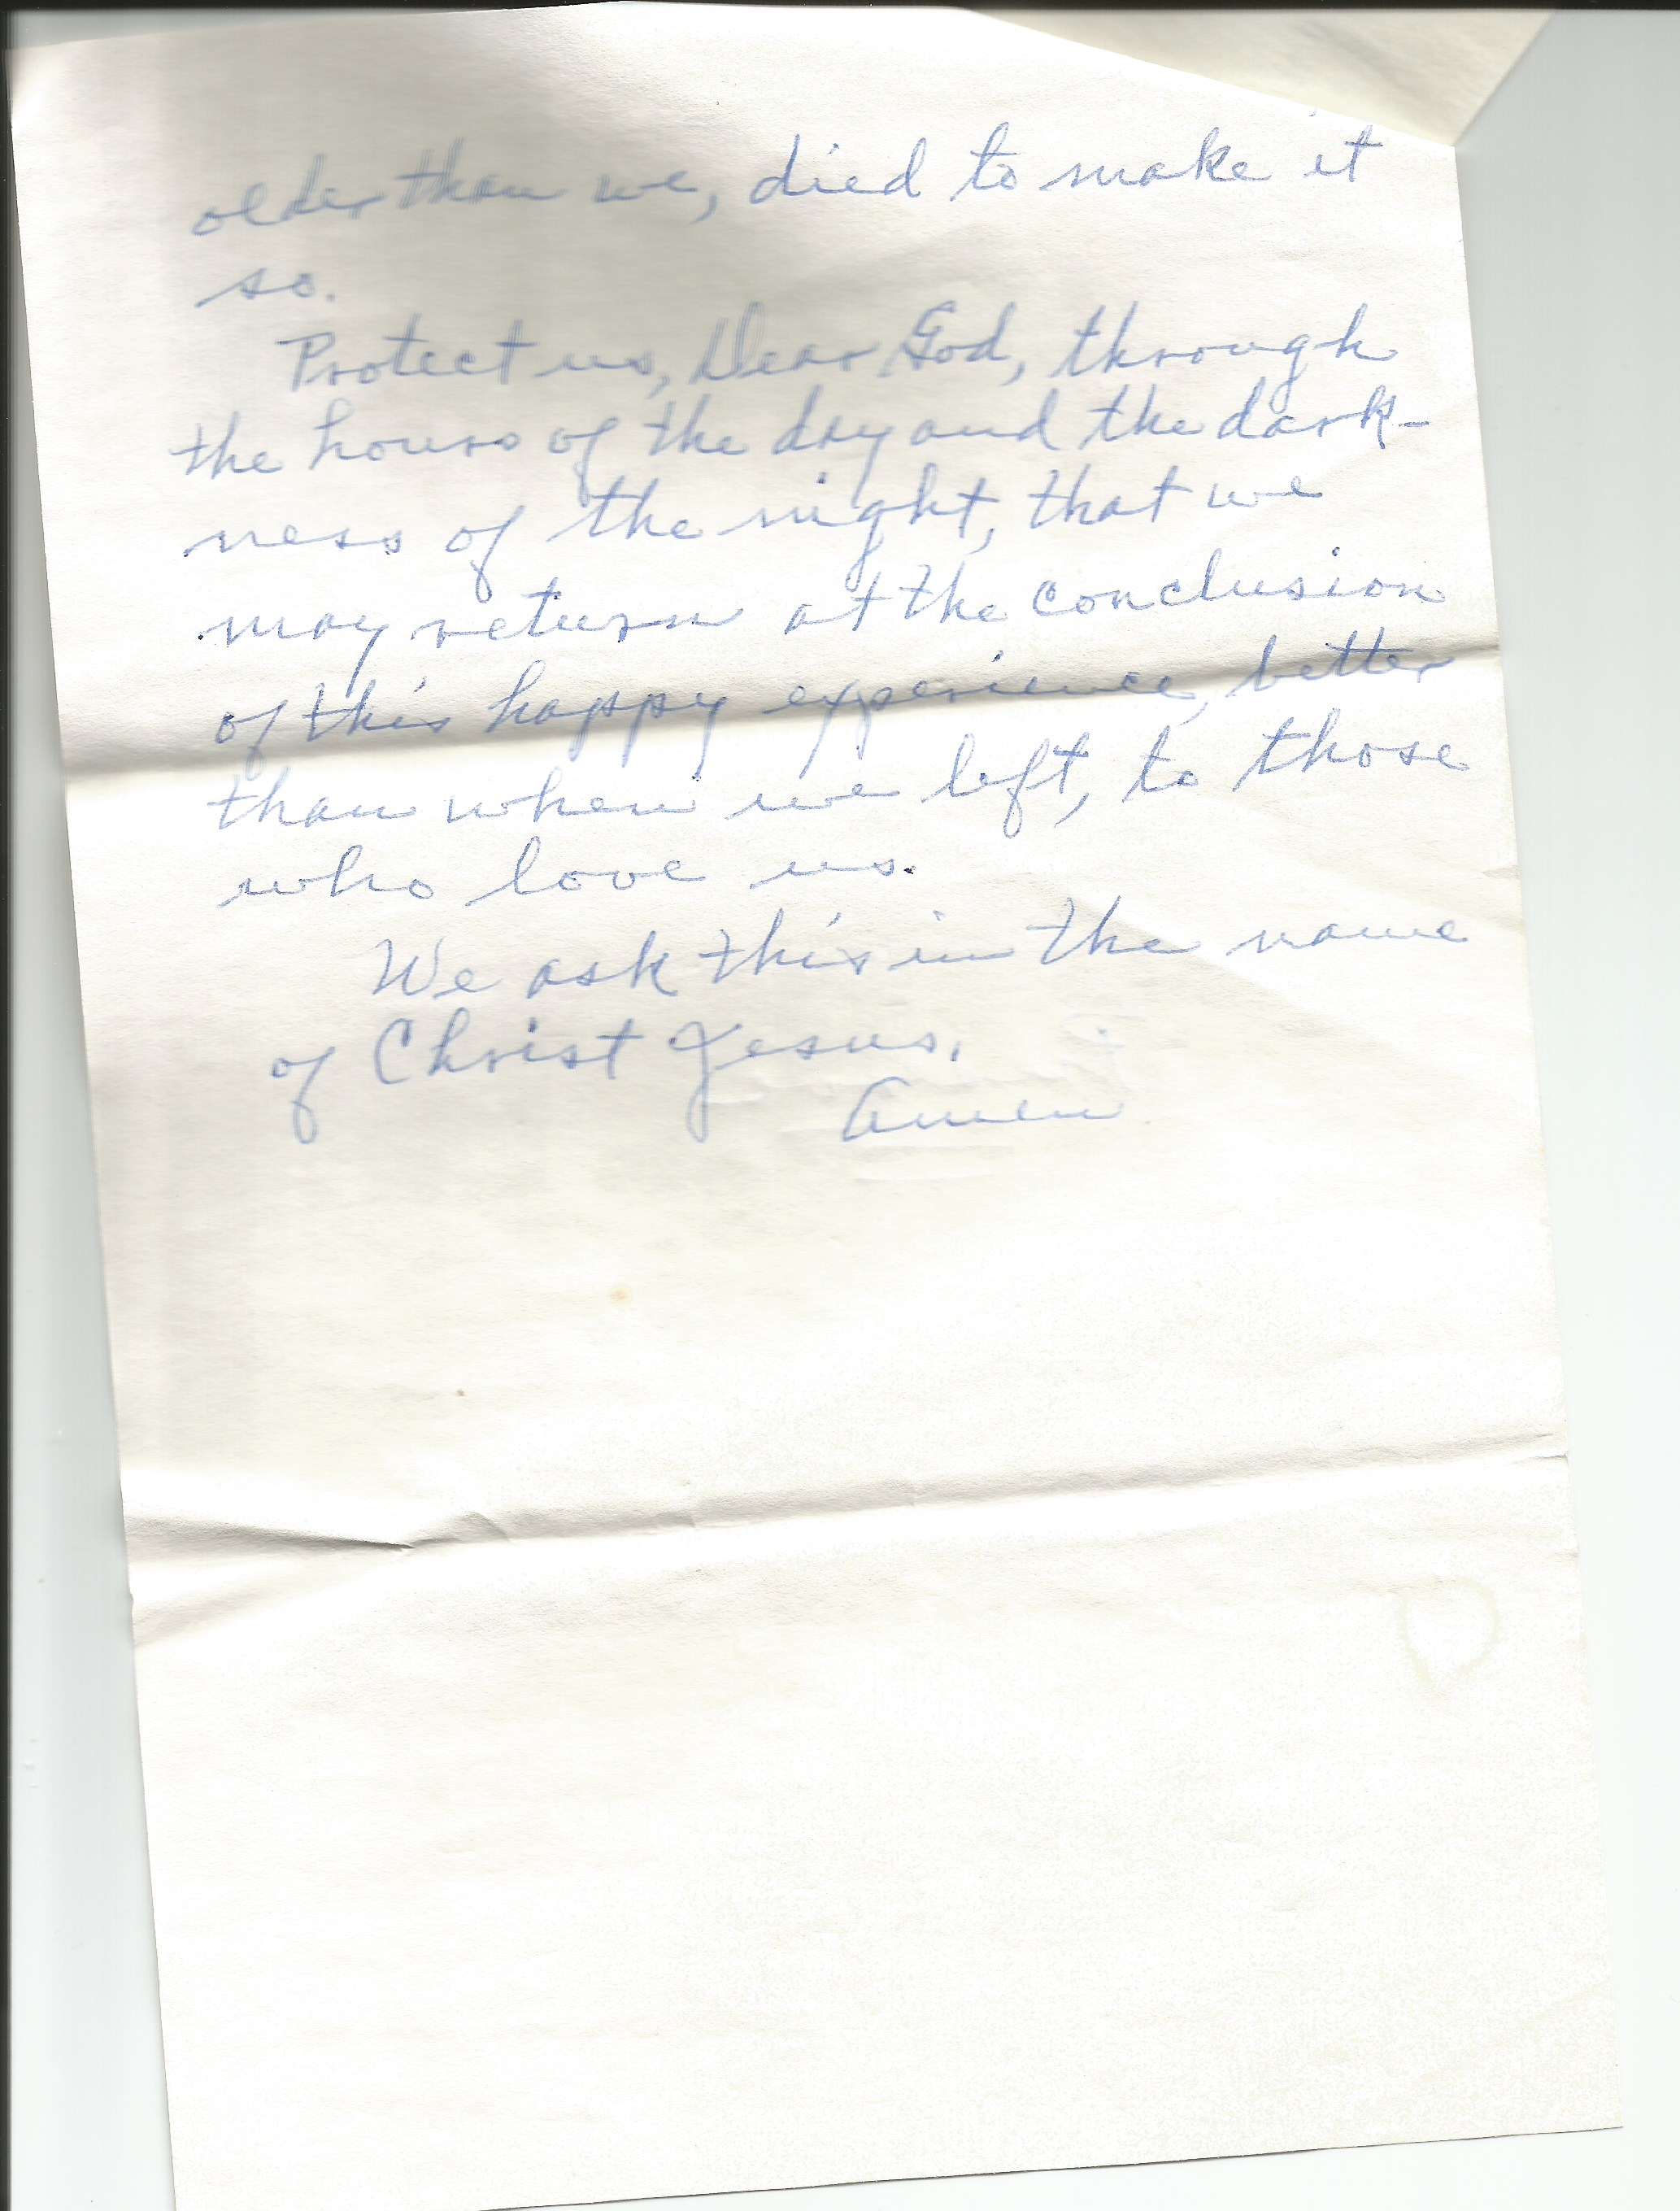 older than we, died to make it
so.
Protect us, Dear God, through
the hours of the day and the dark-
ness of the night, that we
may return at the conclusion
of this happy experience, better
than when we left, to those
who love us.
We ask this in the name
of Christ Jesus.
Amen